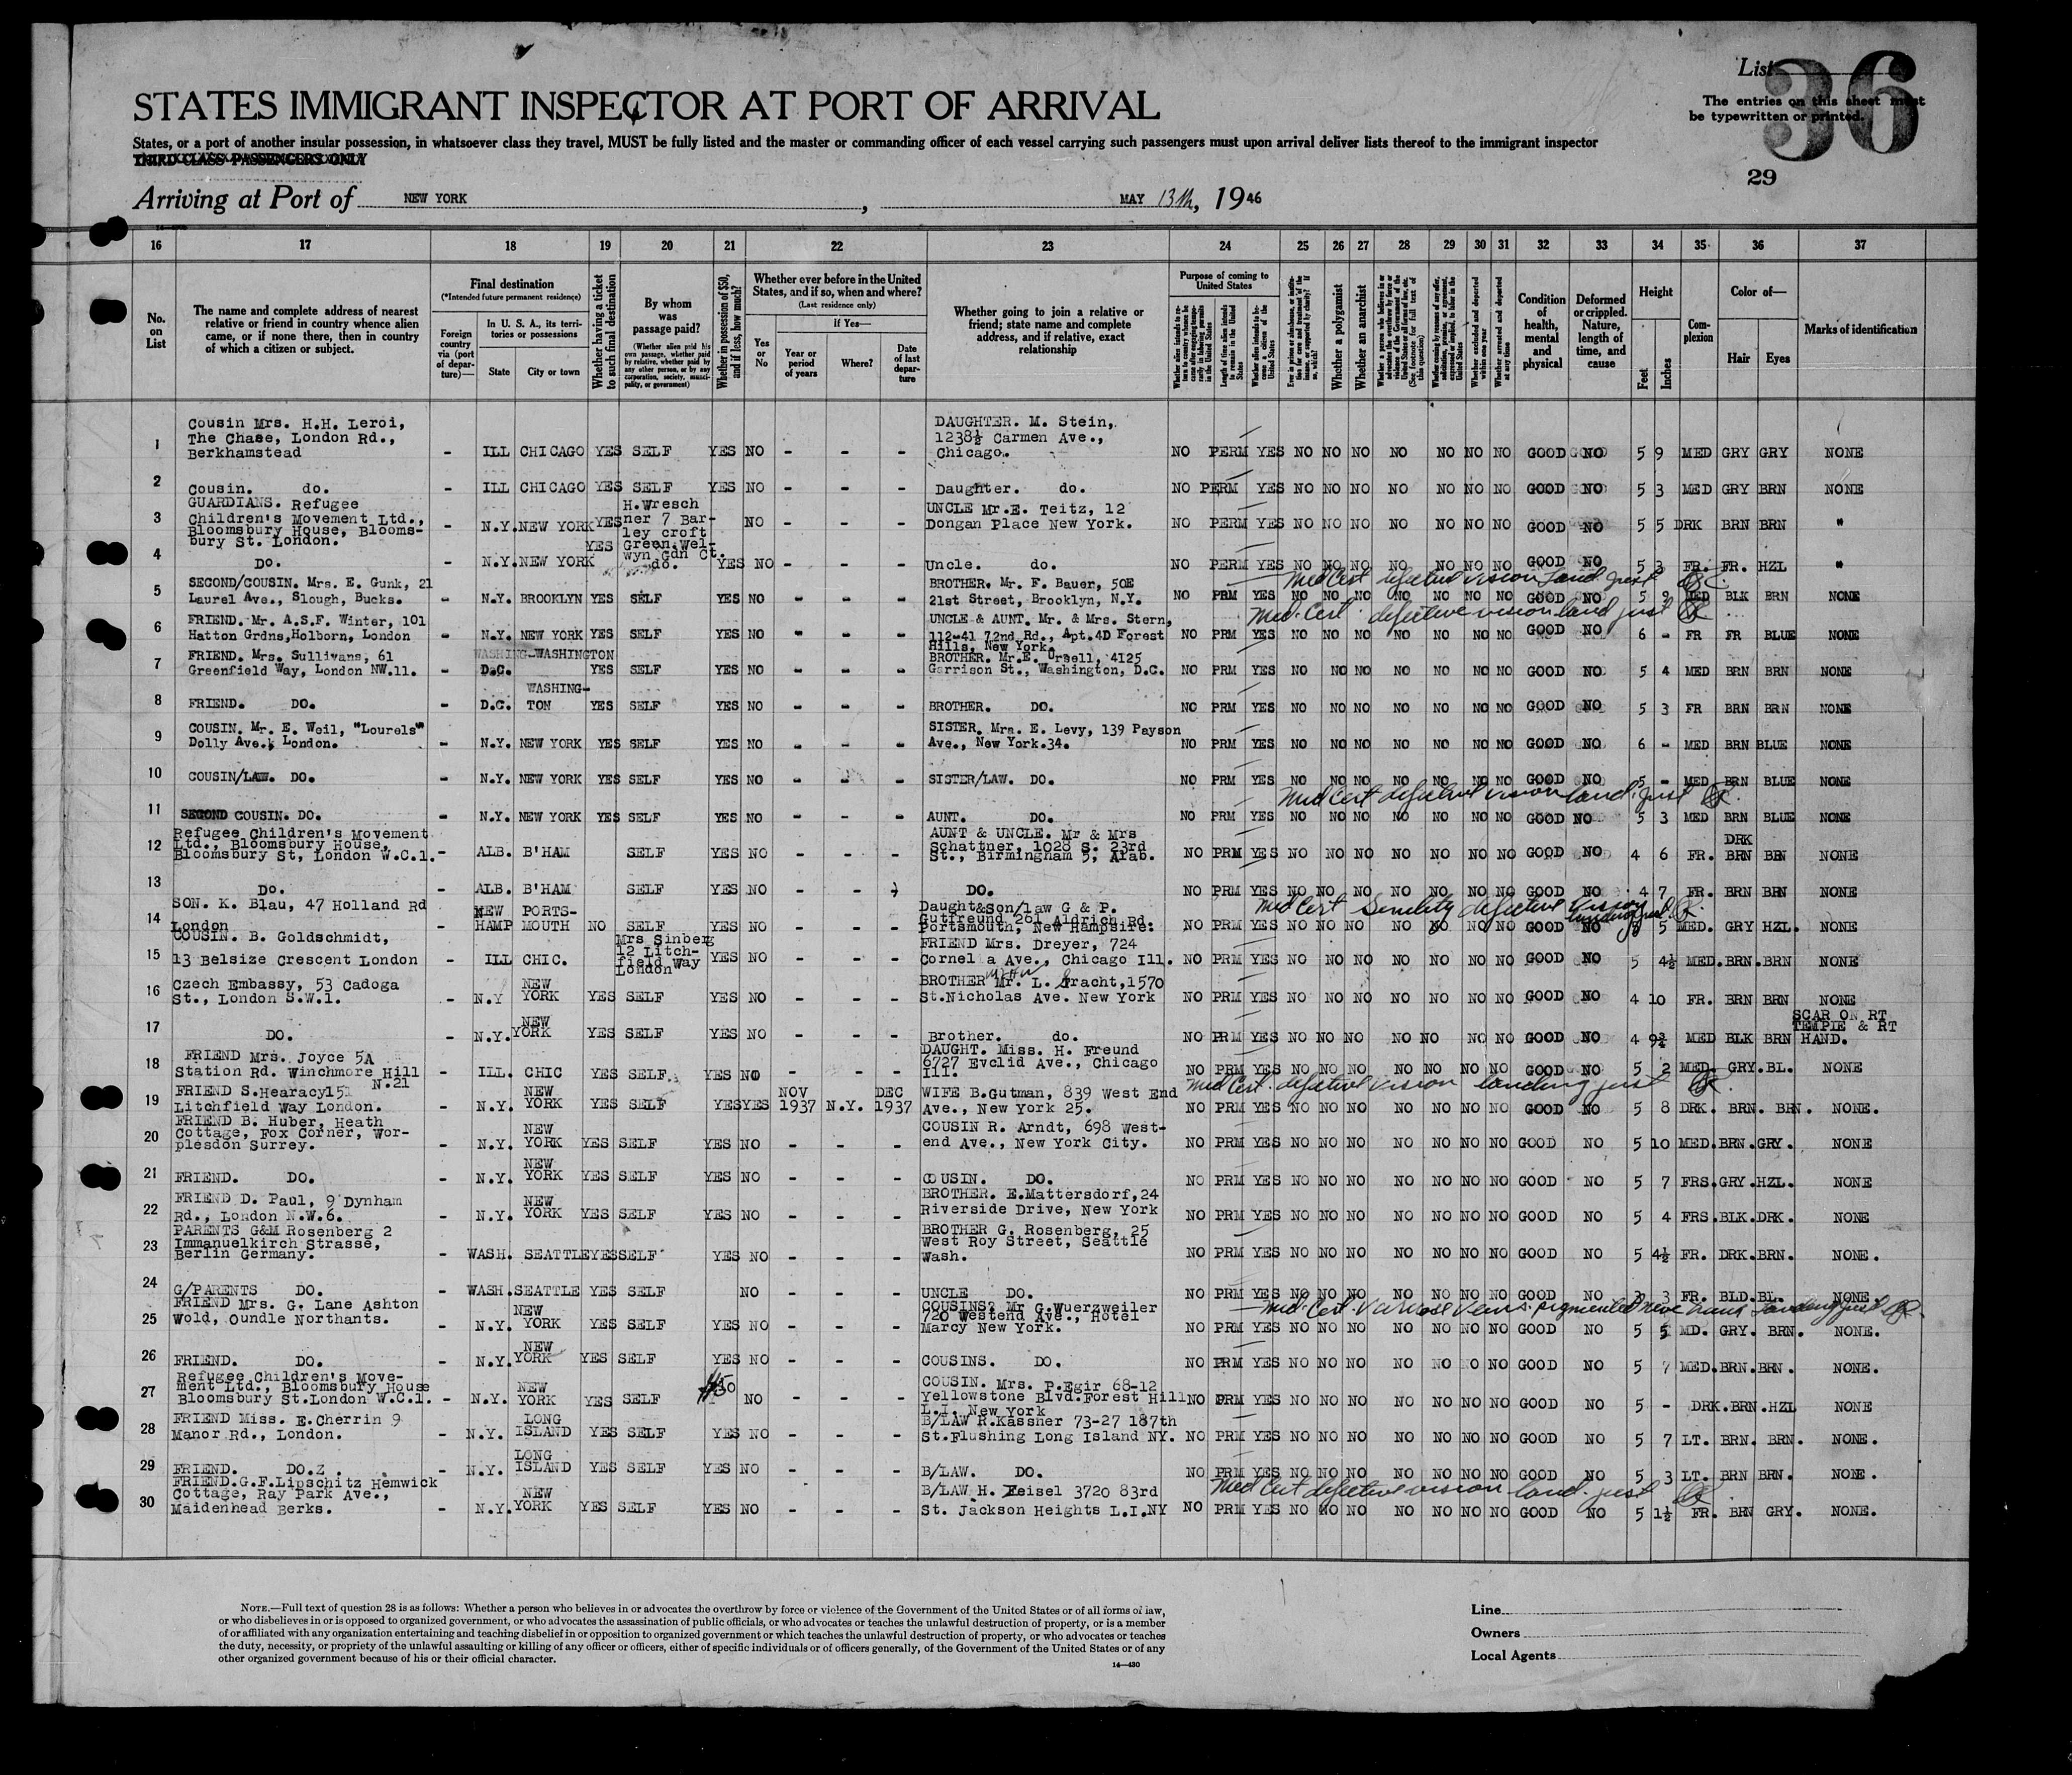 List
36
The entries on this sheet must
be typewritten or printed.
29
STATES IMMIGRANT INSPECTOR AT PORT OF ARRIVAL
States, or a port of another insular possession, in whatsoever class they travel, MUST be fully listed and the master or commanding officer of each vessel carrying such passengers must upon arrival deliver lists thereof to the immigrant inspector
THIRD CLASS PASSENGERS ONLY
Arriving at Port of NEW YORK , MAY 13th, 1946
16 17 18 19 20 21 22 23 24 25 26 27 28 29 30 31 32 33 34 35 36 37
No. on List
The name and complete address of nearest relative or friend in country whence alien came, or if none there, then in country of which a citizen or subject.
Final destination
(*Intended future permanent residence)
Foreign country via (port of departure)—
In U. S. A., its territories or possessions
State City or town
Whether having a ticket to such final destination
By whom was passage paid?
(Whether alien paid his own passage, whether paid by relative, whether paid by any other person, or by any corporation, society, municipality, or government)
Whether in possession of $50, and if less, how much?
Whether ever before in the United States, and if so, when and where?
(Last residence only)
Yes or No
If Yes—
Year or period of years
Where?
Date of last departure
Whether going to join a relative or friend; state name and complete address, and if relative, exact relationship
Purpose of coming to United States
Length of time alien intends to remain in the United States
Whether a polygamist
Whether an anarchist
Condition of health, mental and physical
Deformed or crippled. Nature, length of time, and cause
Height
Feet Inches
Complexion
Color of—
Hair Eyes
Marks of identification
Cousin Mrs. H.H. Leroi, DAUGHTER. M. Stein,
The Chase, London Rd., 1238½ Carmen Ave.,
1 Berkhamstead - ILL CHICAGO YES SELF YES NO - - - Chicago. NO PERM YES NO NO NO NO NO NO NO GOOD NO 5 9 MED GRY GRY NONE
2 Cousin. do. - ILL CHICAGO YES SELF YES NO - - - Daughter. do. NO PERM YES NO NO NO NO NO NO NO GOOD NO 5 3 MED GRY BRN NONE
GUARDIANS. Refugee H.Wresch UNCLE Mr.E. Teitz, 12
3 Children's Movement Ltd., - N.Y. NEW YORK YES ner 7 Bar- NO - - - Dongan Place New York. NO PERM YES NO NO NO NO NO NO NO GOOD NO 5 5 DRK BRN BRN "
Bloomsbury House, Blooms- ley croft
bury St. London. Green.Wel-
wyn Gdn Ct.
4 Do. - N.Y. NEW YORK YES do. YES NO - - - Uncle. do. NO PERM YES NO NO NO NO NO NO NO GOOD NO 5 3 FR. FR. HZL "
Med Cert defective vision land just
SECOND/COUSIN. Mrs. E. Gunk, 21 BROTHER. Mr. F. Bauer, 50E
5 Laurel Ave., Slough, Bucks. - N.Y. BROOKLYN YES SELF YES NO - - - 21st Street, Brooklyn, N.Y. NO PRM YES NO NO NO NO NO NO NO GOOD NO 5 9 MED BLK BRN NONE
Med. Cert. defective vision land just
FRIEND. Mr. A.S.F. Winter, 101 UNCLE & AUNT. Mr. & Mrs. Stern,
6 Hatton Grdns,Holborn, London - N.Y. NEW YORK YES SELF YES NO - - - 112-41 72nd Rd., Apt.4D Forest Hills, New York. NO PRM YES NO NO NO NO NO NO NO GOOD NO 6 - FR FR BLUE NONE
FRIEND. Mrs. Sullivans, 61 WASHING-WASHINGTON BROTHER. Mr.E. Ursell, 4125
7 Greenfield Way, London NW.11. - D.C. YES SELF YES NO - - - Garrison St., Washington, D.C. NO PRM YES NO NO NO NO NO NO NO GOOD NO 5 4 MED BRN BRN NONE
8 FRIEND. DO. - D.C. WASHING-TON YES SELF YES NO - - - BROTHER. DO. NO PRM YES NO NO NO NO NO NO NO GOOD NO 5 3 FR BRN BRN NONE
COUSIN. Mr. E. Weil, "Lourels" SISTER. Mrs. E. Levy, 139 Payson
9 Dolly Ave., London. - N.Y. NEW YORK YES SELF YES NO - - - Ave., New York.34. NO PRM YES NO NO NO NO NO NO NO GOOD NO 6 - MED BRN BLUE NONE
10 COUSIN/LAW. DO. - N.Y. NEW YORK YES SELF YES NO - - - SISTER/LAW. DO. NO PRM YES NO NO NO NO NO NO NO GOOD NO 5 - MED BRN BLUE NONE
Med Cert defective vision land. just
11 SECOND COUSIN. DO. - N.Y. NEW YORK YES SELF YES NO - - - AUNT. DO. NO PRM YES NO NO NO NO NO NO NO GOOD NO 5 3 MED BRN BLUE NONE
Refugee Children's Movement AUNT & UNCLE. Mr & Mrs
12 Ltd., Bloomsbury House, Schattner, 1028 S. 23rd DRK
Bloomsbury St, London W.C.1. - ALB. B'HAM SELF YES NO - - - St., Birmingham 5, Arab. NO PRM YES NO NO NO NO NO NO NO GOOD NO 4 6 FR. BRN BRN NONE
13 Do. - ALB. B'HAM SELF YES NO - - - DO. NO PRM YES NO NO NO NO NO NO NO GOOD NO 4 7 FR. BRN BRN NONE
Med Cert Senility defective vision landing just.
SON. K. Blau, 47 Holland Rd NEW PORTS- Daught&son/law G & P.
14 London - HAMP MOUTH NO SELF YES NO - - - Gutfreund 261 Aldrich Rd. Portsmouth, New Hampsire. NO PRM YES NO NO NO NO NO NO NO GOOD NO 5 5 MED. GRY HZL. NONE
COUSIN. B. Goldschmidt, Mrs Sinberg FRIEND Mrs. Dreyer, 724
15 13 Belsize Crescent London - ILL CHIC. 12 Litch-field Way London YES NO - - - Cornel a Ave., Chicago Ill. NO PRM YES NO NO NO NO NO NO NO GOOD NO 5 4½ MED. BRN. BRN NONE
Czech Embassy, 53 Cadoga NEW BROTHER Mr. L. Bracht,1570
16 St., London S.W.1. - N.Y YORK YES SELF YES NO - - - St.Nicholas Ave. New York NO PRM YES NO NO NO NO NO NO NO GOOD NO 4 10 FR. BRN BRN NONE
17 DO. - N.Y. NEW YORK YES SELF YES NO - - - Brother. do. NO PRM YES NO NO NO NO NO NO NO GOOD NO 4 9¾ MED BLK BRN SCAR ON RT TEMPIE & RT HAND.
FRIEND Mrs. Joyce 5A DAUGHT. Miss. H. Freund
18 Station Rd. Winchmore Hill N.21 - ILL. CHIC YES SELF. YES NO - - - 6727 Evclid Ave., Chicago Ill. NO PRM YES NO NO NO NO NO NO NO GOOD NO 5 2 MED. GRY. BL. NONE
Med Cert. defective vision landing just
FRIEND S.Hearacy151 NEW NOV DEC WIFE B.Gutman, 839 West End
19 Litchfield Way London. - N.Y. YORK YES SELF YES YES 1937 N.Y. 1937 Ave., New York 25. NO PRM YES NO NO NO NO NO NO NO GOOD NO 5 8 DRK. BRN. BRN. NONE.
FRIEND B. Huber, Heath COUSIN R. Arndt, 698 West-
20 Cottage, Fox Corner, Wor-plesdon Surrey. - N.Y. NEW YORK YES SELF YES NO - - - end Ave., New York City. NO PRM YES NO NO NO NO NO NO NO GOOD NO 5 10 MED. BRN. GRY. NONE
21 FRIEND. DO. - N.Y. NEW YORK YES SELF YES NO - - - COUSIN. DO. NO PRM YES NO NO NO NO NO NO NO GOOD NO 5 7 FRS. GRY. HZL. NONE
FRIEND D. Paul, 9 Dynham NEW BROTHER. E.Mattersdorf,24
22 Rd., London N.W.6. - N.Y. YORK YES SELF YES NO - - - Riverside Drive, New York NO PRM YES NO NO NO NO NO NO NO GOOD NO 5 4 FRS. BLK. DRK. NONE
PARENTS G&M Rosenberg 2 BROTHER G. Rosenberg, 25
23 Immanuelkirch Strasse, West Roy Street, Seattle
Berlin Germany. - WASH. SEATTLE YES SELF YES NO - - - Wash. NO PRM YES NO NO NO NO NO NO NO GOOD NO 5 4½ FR. DRK. BRN. NONE.
24 G/PARENTS DO. - WASH. SEATTLE YES SELF NO - - - UNCLE DO. NO PRM YES NO NO NO NO NO NO NO GOOD NO 3 3 FR. BLD. BL. NONE.
Med. Cert. Varicose Veins. pigmented landing just
FRIEND Mrs. G. Lane Ashton NEW COUSINS? Mr G.Wuerzweiler
25 Wold, Oundle Northants. - N.Y. YORK YES SELF YES NO - - - 720 Westend Ave., Hotel Marcy New York. NO PRM YES NO NO NO NO NO NO NO GOOD NO 5 5 MD. GRY. BRN. NONE.
26 FRIEND. DO. - N.Y. NEW YORK YES SELF YES NO - - - COUSINS. DO. NO PRM YES NO NO NO NO NO NO NO GOOD NO 5 7 MED. BRN. BRN. NONE.
Refugee Children's Move- COUSIN. Mrs. P.Egir 68-12
27 ment Ltd., Bloomsbury House NEW Yellowstone Blvd.Forest Hill
Bloomsbury St.London W.C.1. - N.Y. YORK YES SELF NO - - - L.I. New York NO PRM YES NO NO NO NO NO NO NO GOOD NO 5 - DRK. BRN. HZL NONE
FRIEND Miss. E.Cherrin 9 LONG B/LAW R.Kassner 73-27 187th
28 Manor Rd., London. - N.Y. ISLAND YES SELF YES NO - - - St.Flushing Long Island NY. NO PRM YES NO NO NO NO NO NO NO GOOD NO 5 7 LT. BRN. BRN. NONE.
29 FRIEND. DO.Z . - N.Y. LONG ISLAND YES SELF YES NO - - - B/LAW. DO. NO PRM YES NO NO NO NO NO NO NO GOOD NO 5 3 LT. BRN BRN. NONE.
Med Cert defective vision land. just
FRIEND.G.F.Lipschitz Hemwick B/LAW H. Zeisel 3720 83rd
30 Cottage, Ray Park Ave., NEW
Maidenhead Berks. - N.Y. YORK YES SELF YES NO - - - St. Jackson Heights L.I.NY NO PRM YES NO NO NO NO NO NO NO GOOD NO 5 1½ FR. BRN GRY. NONE.
NOTE.—Full text of question 28 is as follows: Whether a person who believes in or advocates the overthrow by force or violence of the Government of the United States or of all forms of law,
or who disbelieves in or is opposed to organized government, or who advocates the assassination of public officials, or who advocates or teaches the unlawful destruction of property, or is a member
of or affiliated with any organization entertaining and teaching disbelief in or opposition to organized government or which teaches the unlawful destruction of property, or who advocates or teaches
the duty, necessity, or propriety of the unlawful assaulting or killing of any officer or officers, either of specific individuals or of officers generally, of the Government of the United States or of any
other organized government because of his or their official character.
14—430
Line
Owners
Local Agents